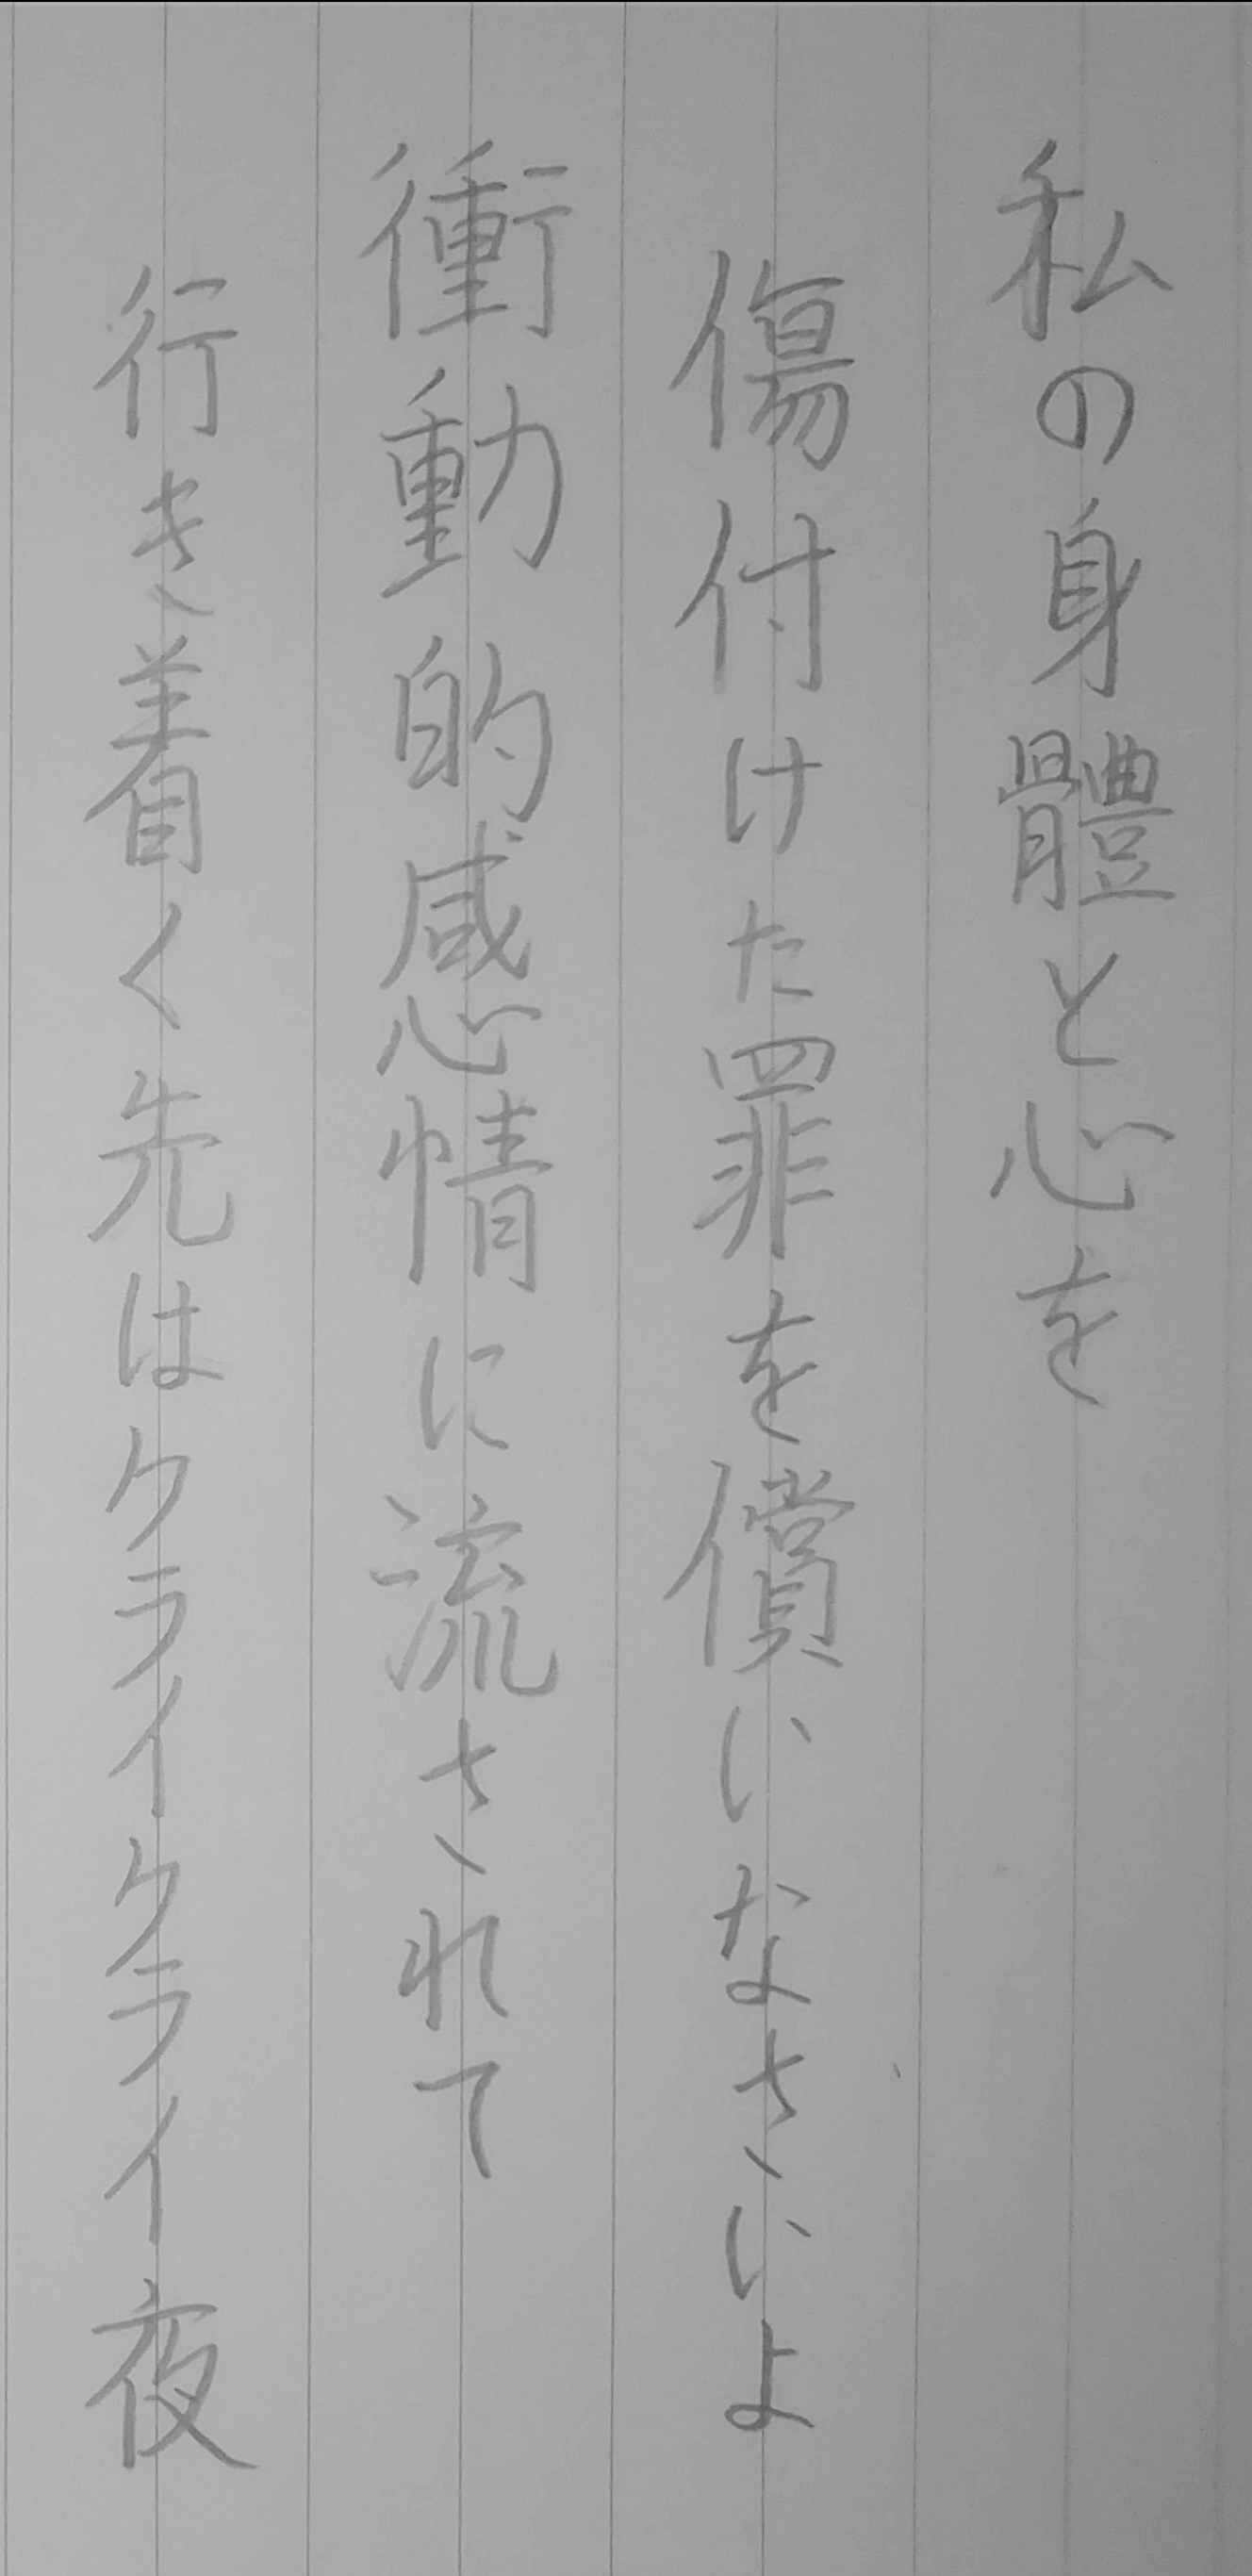 私の身體と心を
傷付けた罪を償いなさいよ
衝動的感情に流されて
行き着く先はクライクライ夜